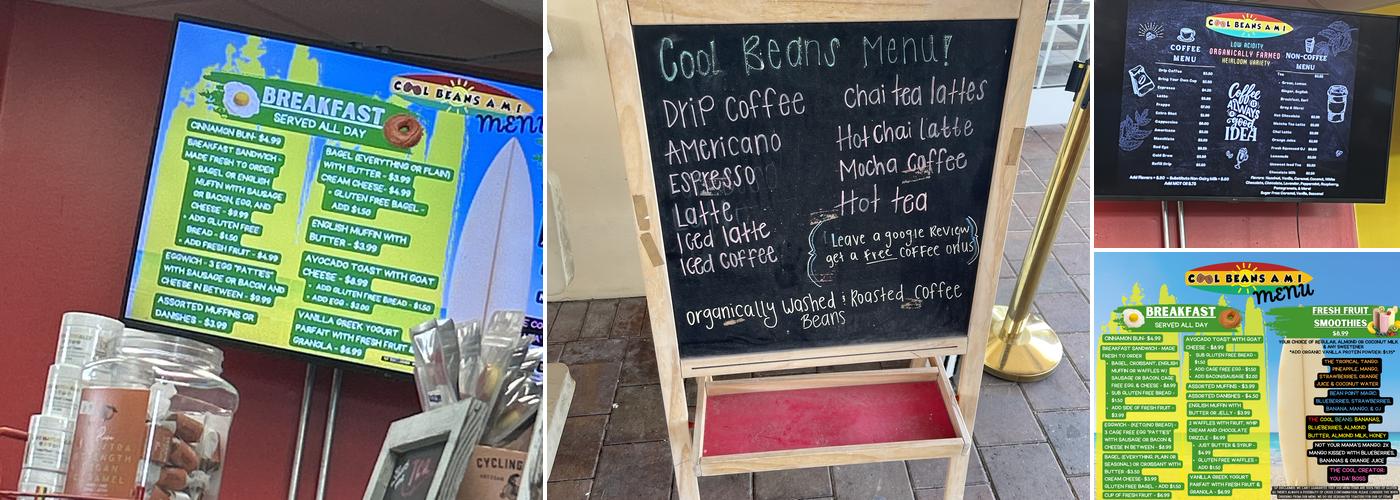 COOL BEANS A M I
menu
BREAKFAST
SERVED ALL DAY
CINNAMON BUN- $4.99
BREAKFAST SANDWICH -
MADE FRESH TO ORDER
• BAGEL OR ENGLISH
MUFFIN WITH SAUSAGE
OR BACON, EGG, AND
CHEESE - $9.99
• ADD GLUTEN FREE
BREAD - $1.50
• ADD FRESH FRUIT - $4.99
EGGWICH - 3 EGG "PATTIES"
WITH SAUSAGE OR BACON AND
CHEESE IN BETWEEN - $9.99
ASSORTED MUFFINS OR
DANISHES - $3.99
BAGEL (EVERYTHING OR PLAIN)
WITH BUTTER - $3.99
CREAM CHEESE- $4.99
• GLUTEN FREE BAGEL -
ADD $1.50
ENGLISH MUFFIN WITH
BUTTER - $3.99
AVOCADO TOAST WITH GOAT
CHEESE - $8.99
• ADD GLUTEN FREE BREAD - $1.50
• ADD EGG - $2.00
VANILLA GREEK YOGURT
PARFAIT WITH FRESH FRUIT &
GRANOLA - $6.99
CYCLING
Cool Beans Menu!
Drip Coffee
Americano
Espresso
Latte
Iced latte
Iced coffee
Chai tea lattes
Hot Chai latte
Mocha coffee
Hot tea
Leave a google Review
get a free coffee on us
organically washed & Roasted coffee
Beans
COOL BEANS A M I
LOW ACIDITY
ORGANICALLY FARMED
HEIRLOOM VARIETY
COFFEE
MENU
Drip Coffee
Bring Your Own Cup
Espresso
Latte
Frappe
Extra Shot
Cappuccino
Americano
Macchiato
Red Eye
Cold Brew
Refill Drip
Coffee
is
ALWAYS
a good
IDEA
NON-COFFEE
MENU
Tea
Hot Chocolate
Matcha Tea Latte
Chai Latte
Orange Juice
Lemonade
Chocolate Milk
COOL BEANS A M I
menu
BREAKFAST
SERVED ALL DAY
CINNAMON BUN- $4.99
BREAKFAST SANDWICH - MADE
FRESH TO ORDER
• BAGEL, CROISSANT, ENGLISH
MUFFIN OR WAFFLES W/
SAUSAGE OR BACON, CAGE
FREE EGG, & CHEESE - $8.99
• SUB GLUTEN FREE BREAD -
$1.50
• ADD SIDE OF FRESH FRUIT -
$3.99
EGGWICH - (KETO/NO BREAD) -
3 CAGE FREE EGG "PATTIES"
WITH SAUSAGE OR BACON &
CHEESE IN BETWEEN - $8.99
BAGEL (EVERYTHING, PLAIN OR
SEASONAL) OR CROISSANT WITH
BUTTER - $3.50
CREAM CHEESE - $3.99
GLUTEN FREE BAGEL - ADD $1.50
CUP OF FRESH FRUIT - $6.99
AVOCADO TOAST WITH GOAT
CHEESE - $8.99
• SUB GLUTEN FREE BREAD -
$1.50
• ADD CAGE FREE EGG $1.50
• ADD BACON/SAUSAGE $2.00
ASSORTED MUFFINS - $3.99
ASSORTED DANISHES - $4.50
ENGLISH MUFFIN WITH
BUTTER OR JELLY - $3.99
2 WAFFLES WITH FRUIT, WHIP
CREAM AND CHOCOLATE
DRIZZLE - $6.99
• JUST BUTTER & SYRUP -
$4.99
• GLUTEN FREE WAFFLES -
ADD $1.50
VANILLA GREEK YOGURT
PARFAIT WITH FRESH FRUIT &
GRANOLA - $6.99
FRESH FRUIT
SMOOTHIES
$8.99
YOUR CHOICE OF REGULAR, ALMOND OR COCONUT MILK
& ANY SWEETENER
*ADD ORGANIC VANILLA PROTEIN POWDER: $1.75*
THE TROPICAL TANGO:
PINEAPPLE, MANGO,
STRAWBERRIES, ORANGE
JUICE & COCONUT WATER
BEAN POINT MAGIC:
BLUEBERRIES, STRAWBERRIES,
BANANA, MANGO, & OJ
THE COOL BEANS: BANANAS,
BLUEBERRIES, ALMOND
BUTTER, ALMOND MILK, HONEY
NOT YOUR MAMA'S MANGO: 2X
MANGO KISSED WITH BLUEBERRIES,
BANANAS & ORANGE JUICE
THE COOL CREATOR:
YOU DA' BOSS